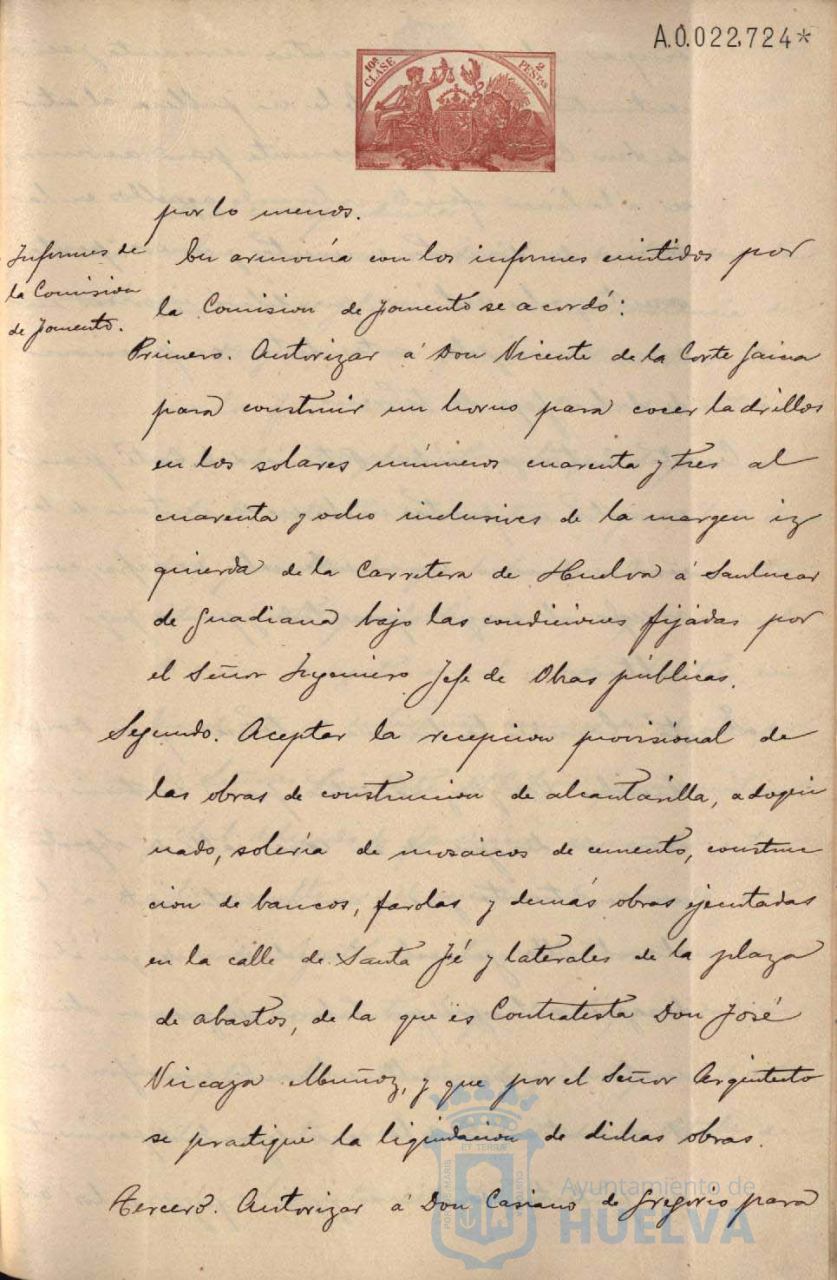 A.0.022,724*
10ª CLASE
2 PESTAS
por lo menos.
Informes de
la Comision
de Fomento.
En armonía con los informes emitidos por
la Comision de Fomento se acordó:
Primero. Autorizar á Don Vicente de la Corte Gaina
para construir un horno para cocer ladrillos
en los solares números cuarenta y tres al
cuarenta y ocho inclusives de la margen iz
quierda de la Carretera de Huelva á Sanlucar
de Guadiana bajo las condiciones fijadas por
el Señor Ingeniero Jefe de Obras públicas.
Segundo. Aceptar la recepcion provisional de
las obras de construccion de alcantarilla, adoqui
nado, solería de mosaicos de cemento, construc
cion de bancos, farolas y demás obras ejecutadas
en la calle de Santa Fé y laterales de la plaza
de abastos, de la que es Contratista Don José
Vizcaya Muñoz, y que por el Señor Arquitecto
se practique la liquidacion de dichas obras.
Tercero. Autorizar á Don Casiano de Gregorio para
PORTUS MARIS ET TERRAE CUSTODIA
Ayuntamiento de
HUELVA